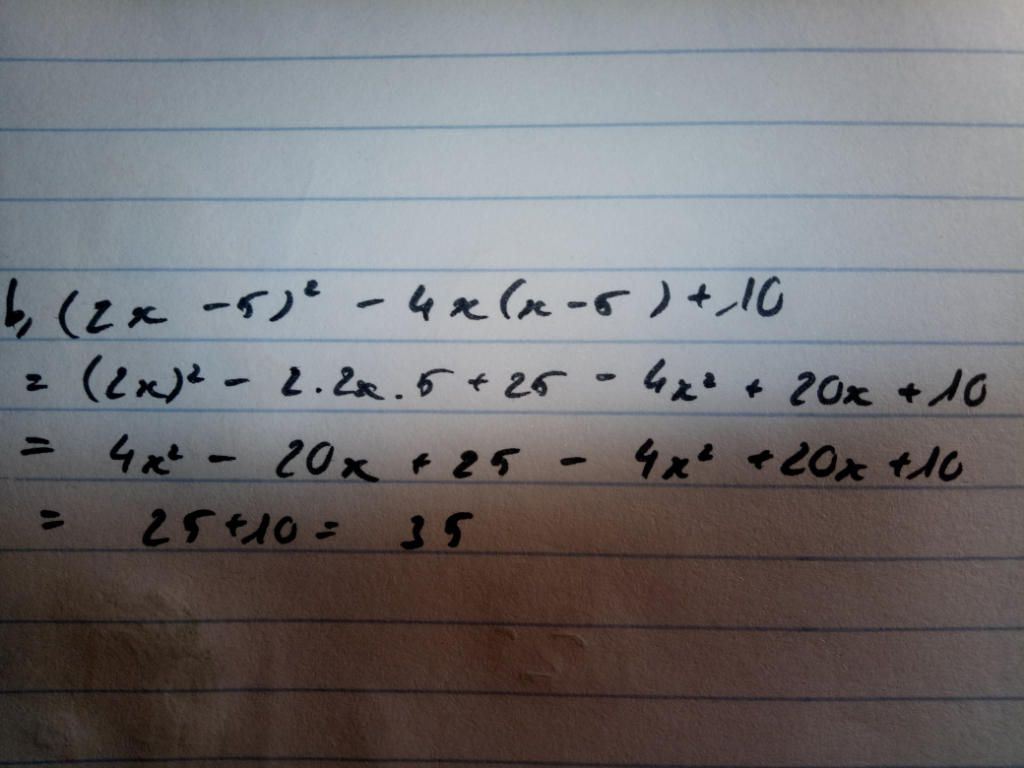 b, (2x - 5)² - 4x(x - 5) + 10
= (2x)² - 2.2x.5 + 25 - 4x² + 20x + 10
= 4x² - 20x + 25 - 4x² + 20x + 10
= 25 + 10 = 35